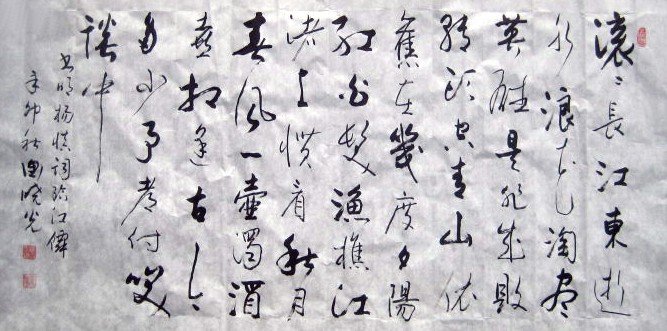 滾〻長江東逝
水浪花淘盡
英雄是非成敗
轉頭空青山依
舊在幾度夕陽
紅白髮漁樵江
渚上慣看秋月
春風一壺濁酒
喜相逢古今
多少事都付笑
談中
書明楊慎詞臨江僊
辛卯秋